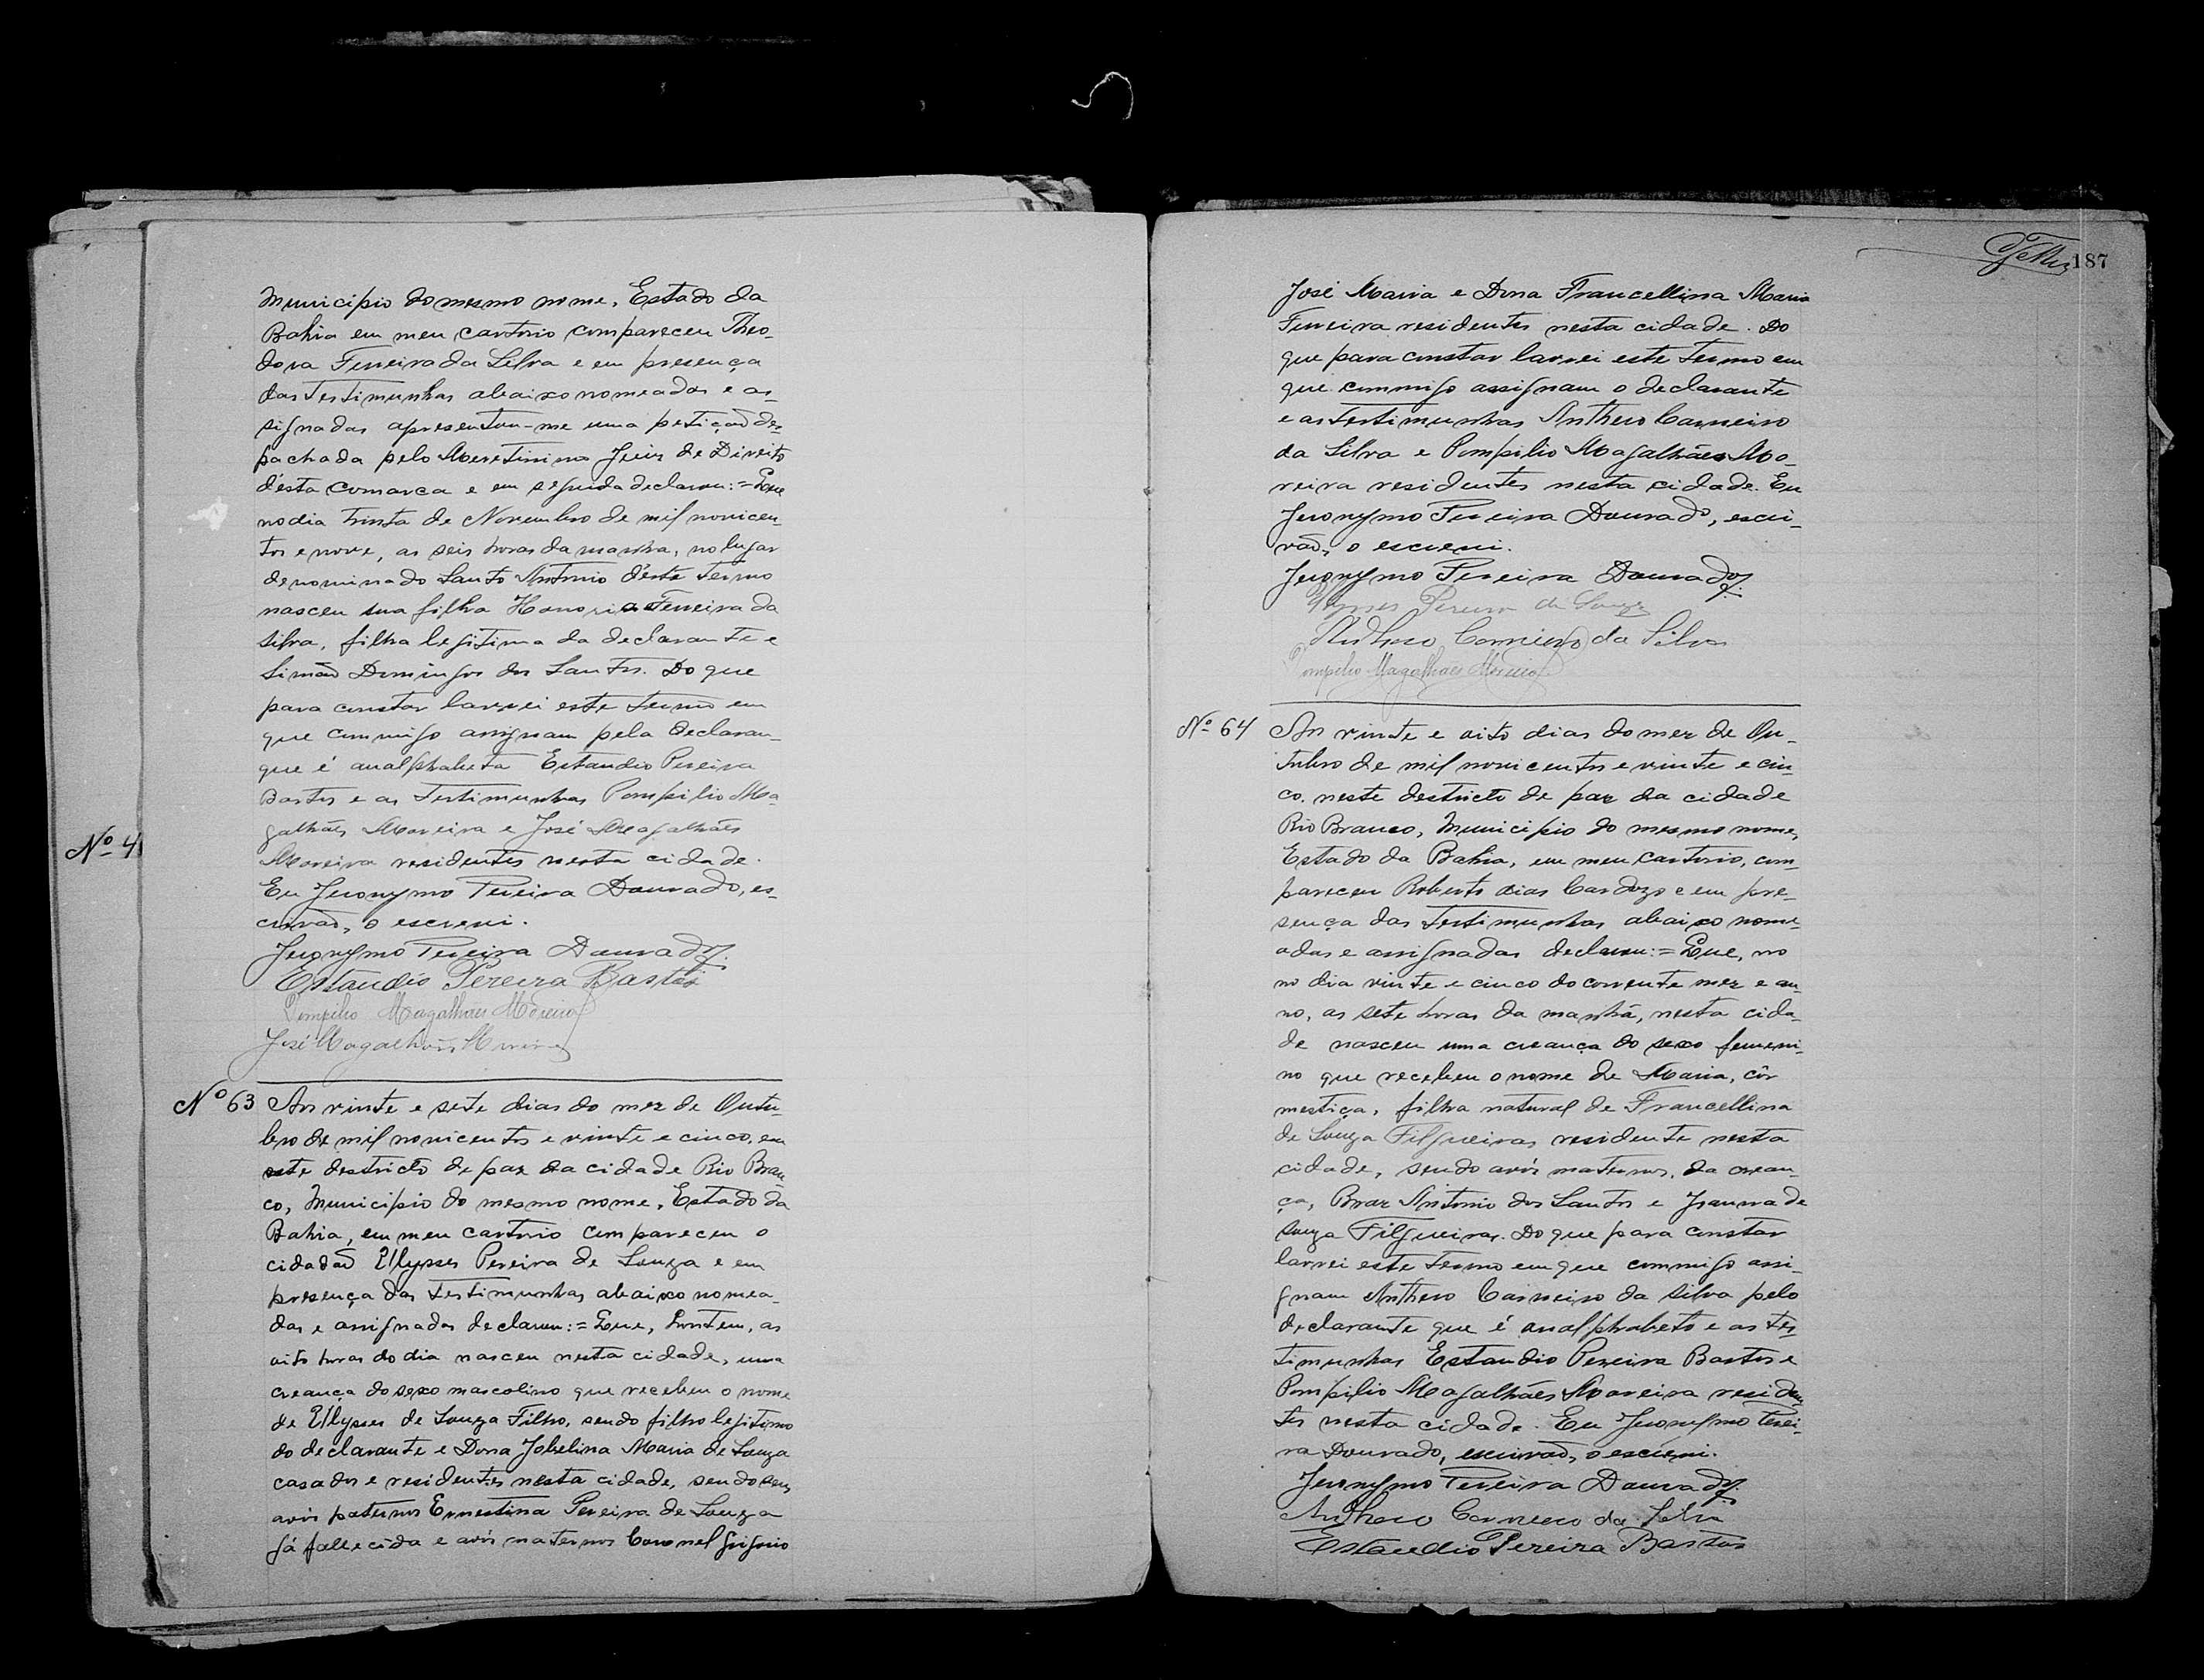 Municipio do mesmo nome, Estado da
Bahia em meu cartorio compareceu Theo-
dora Ferreira da Silva e em presença
das testimunhas abaixo nomeadas e as-
signadas apresentou-me uma petição des-
pachada pelo Meretissimo Juiz de Direito
d'esta comarca e em seguida declarou:=Que
no dia trinta de Novembro de mil novicen-
tos e nove, as seis horas da manhã, no lugar
denominado Santo Antonio d'este termo
nasceu sua filha Honoria Ferreira da
Silva, filha legitima da declarante e
Simão Domingos dos Santos. Do que
para constar lavrei este termo em
que commigo assignam pela declaran-
que é analphabeta Estaudio Pereira
Bastos e as testimunhas Pompilio Ma-
galhães Moreira e José Magalhães
Moreira residentes nesta cidade.
Nº 4
Eu Jeronymo Pereira Dourado, es-
crivão, o escrevi.
Jeronymo Pereira Dourado
Estaudio Pereira Bastos
Pompilio Magalhães Moreira
José Magalhães Moreira
Nº 63 Aos vinte e sete dias do mez de Outu-
bro de mil novicentos e vinte e cinco, em
este destricto de paz da cidade Rio Bran
co, Municipio do mesmo nome, Estado da
Bahia, em meu cartorio compareceu o
cidadão Ulysses Pereira de Souza e em
presença das testimunhas abaixo nomea-
das e assignadas declarou:=Que, hontem, as
oito horas do dia nasceu nesta cidade, uma
creança do sexo mascolino que recebeu o nome
de Ulysses de Souza Filho, sendo filho legitimo
do declarante e Dona Jobelina Maria de Souza
casados e residentes nesta cidade, sendo seus
avós paternos Ernestina Pereira de Souza
já fallecida e avós maternos Coronel
187
José Maria e Dona Francellina Maria
Ferreira residentes nesta cidade. Do
que para constar lavrei este termo em
que commigo assignam o declarante
e as testimunhas Anthero Carneiro
da Silva e Pompilio Magalhães Mo-
reira residentes nesta cidade. Eu
Jeronymo Pereira Dourado, escri-
vão, o escrevi.
Jeronymo Pereira Dourado
Ulysses Pereira de Souza
Anthero Carneiro da Silva
Pompilio Magalhães Moreira
Nº 64 Aos vinte e oito dias do mez de Ou-
tubro de mil novicentos e vinte e cin-
co, neste destricto de paz da cidade
Rio Branco, Municipio do mesmo nome,
Estado da Bahia, em meu cartorio, com-
pareceu Roberto dias Cardozo e em pre-
sença das testimunhas abaixo nome-
adas e assignadas declarou:=Que, no
no dia vinte e cinco do corrente mez e an-
no, as sete horas da manhã, nesta cida-
de nasceu uma creança do sexo femeni-
no que recebeu o nome de Maria, côr
mestiça, filha natural de Francellina
de Souza Filgueiras residente nesta
cidade, sendo avós maternos, da crean-
ça, Braz Antonio dos Santos e Izaura de
Souza Filgueiras. Do que para constar
lavrei este termo em que commigo assi-
gnam Anthero Carneiro da Silva pelo
declarante que é analphabeto e as tes-
timunhas Estaudio Pereira Bastos e
Pompilio Magalhães Moreira residen
tes nesta cidade. Eu Jeronymo Perei-
ra Dourado, escrivão, o escrevi.
Jeronymo Pereira Dourado
Anthero Carneiro da Silva
Estaudio Pereira Bastos